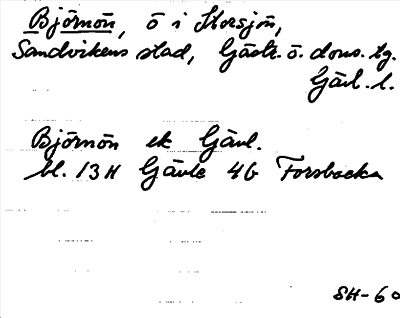 Björnön, ö i Storsjön,
Sandvikens stad, Gästr. ö. doms. tg.
Gävl. l.
Björnön ek Gävl.
bl. 13H Gävle 4G Forsbacka
SH-60